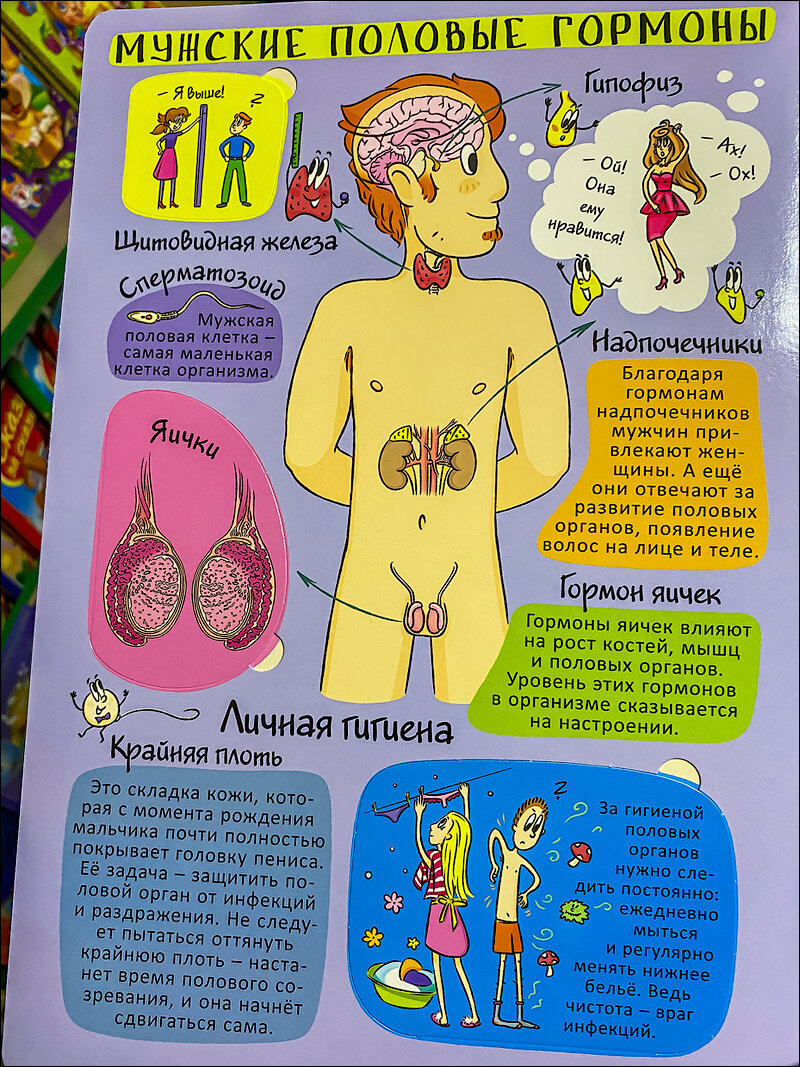 МУЖСКИЕ ПОЛОВЫЕ ГОРМОНЫ
– Я выше!
?
Гипофиз
– Ой!
Она
ему
нравится!
– Ах!
– Ох!
Щитовидная железа
Сперматозоид
Мужская
половая клетка –
самая маленькая
клетка организма.
Надпочечники
Благодаря
гормонам
надпочечников
мужчин при-
влекают жен-
щины. А ещё
они отвечают за
развитие половых
органов, появление
волос на лице и теле.
Яички
Гормон яичек
Гормоны яичек влияют
на рост костей, мышц
и половых органов.
Уровень этих гормонов
в организме сказывается
на настроении.
Личная гигиена
Крайняя плоть
Это складка кожи, кото-
рая с момента рождения
мальчика почти полностью
покрывает головку пениса.
Её задача – защитить по-
ловой орган от инфекций
и раздражения. Не следу-
ет пытаться оттянуть
крайнюю плоть – наста-
нет время полового со-
зревания, и она начнёт
сдвигаться сама.
?
За гигиеной
половых
органов
нужно сле-
дить постоянно:
ежедневно
мыться
и регулярно
менять нижнее
бельё. Ведь
чистота – враг
инфекций.